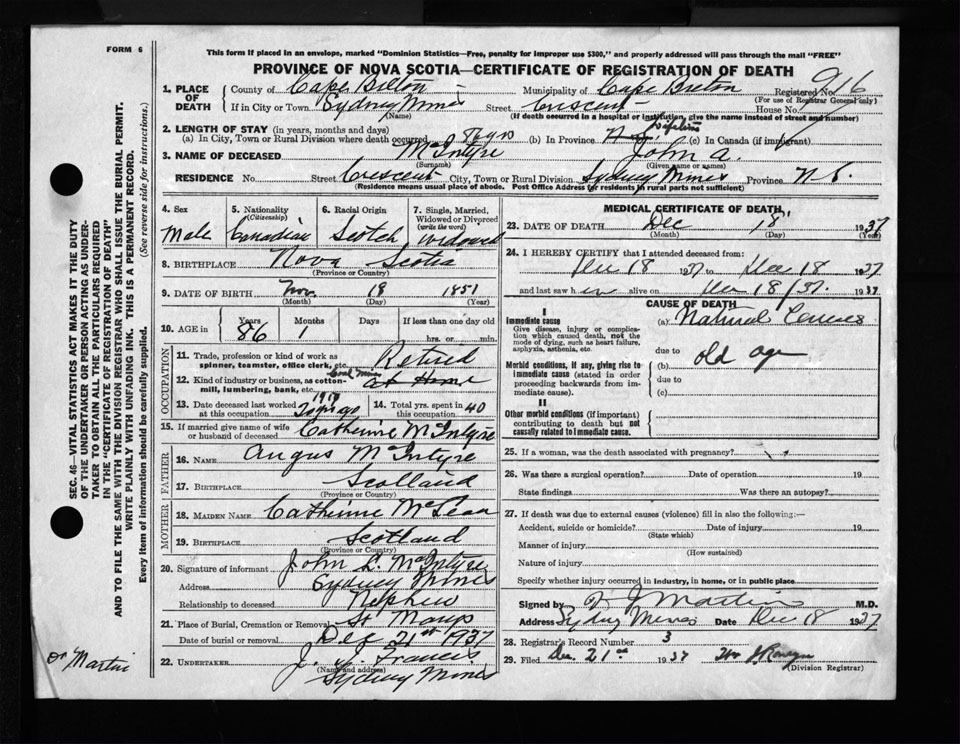 FORM 6
This form if placed in an envelope, marked "Dominion Statistics—Free, penalty for improper use $300," and properly addressed will pass through the mail "FREE"
PROVINCE OF NOVA SCOTIA—CERTIFICATE OF REGISTRATION OF DEATH
1. PLACE OF DEATH
County of Cape Breton Municipality of Cape Breton Registered No. 916
(For use of Registrar General only)
If in City or Town Sydney Mines Street Crescent House No.
(Name) (If death occurred in a hospital or institution, give the name instead of street and number)
2. LENGTH OF STAY (in years, months and days)
(a) In City, Town or Rural Division where death occurred (b) In Province (c) In Canada (if immigrant)
3. NAME OF DECEASED McIntyre John A.
(Surname) (Given name or names)
RESIDENCE No. Street Crescent City, Town or Rural Division Sydney Mines Province N.S.
(Residence means usual place of abode. Post Office Address for residents in rural parts not sufficient)
4. Sex Male
5. Nationality (Citizenship) Canadian
6. Racial Origin Scotch
7. Single, Married, Widowed or Divorced (write the word) Widowed
8. BIRTHPLACE Nova Scotia
(Province or Country)
9. DATE OF BIRTH Nov. 18 1851
(Month) (Day) (Year)
10. AGE in Years 86 Months 1 Days If less than one day old hrs. or min.
OCCUPATION
11. Trade, profession or kind of work as spinner, teamster, office clerk, etc. Retired
12. Kind of industry or business, as cotton-mill, lumbering, bank, etc. Coal Mine at Home
13. Date deceased last worked at this occupation 1917
14. Total yrs. spent in this occupation 40
15. If married give name of wife or husband of deceased Catherine McIntyre
FATHER
16. NAME Angus McIntyre
17. BIRTHPLACE Scotland
(Province or Country)
MOTHER
18. MAIDEN NAME Catherine McLean
19. BIRTHPLACE Scotland
(Province or Country)
20. Signature of informant John L. McIntyre
Address Sydney Mines
Relationship to deceased Nephew
21. Place of Burial, Cremation or Removal St Marys
Date of burial or removal Dec 21st 1937
22. UNDERTAKER J. Francis
(Name and address)
Sydney Mines
MEDICAL CERTIFICATE OF DEATH
23. DATE OF DEATH Dec 18 1937
(Month) (Day) (Year)
24. I HEREBY CERTIFY that I attended deceased from:
Dec 18 1937 to Dec 18 1937
and last saw h im alive on Dec 18/37. 1937
CAUSE OF DEATH
I
Immediate cause
Give disease, injury or complication which caused death, not the mode of dying, such as heart failure, asphyxia, asthenia, etc.
(a) Natural Causes
due to
Morbid conditions, if any, giving rise to immediate cause (stated in order proceeding backwards from immediate cause).
(b) old age
due to
(c)
II
Other morbid conditions (if important) contributing to death but not causally related to immediate cause.
25. If a woman, was the death associated with pregnancy?
26. Was there a surgical operation? Date of operation 19
State findings Was there an autopsy?
27. If death was due to external causes (violence) fill in also the following:—
Accident, suicide or homicide? Date of injury 19
(State which)
Manner of injury
(How sustained)
Nature of injury
Specify whether injury occurred in industry, in home, or in public place
Signed by Martin M.D.
Address Sydney Mines Date Dec 18 1937
28. Registrar's Record Number 3
29. Filed Dec. 21st 1937
(Division Registrar)
SEC. 46—VITAL STATISTICS ACT MAKES IT THE DUTY
OF THE UNDERTAKER OR PERSON ACTING AS UNDER-
TAKER TO OBTAIN ALL THE PARTICULARS REQUIRED
IN THE "CERTIFICATE OF REGISTRATION OF DEATH"
AND TO FILE THE SAME WITH THE DIVISION REGISTRAR WHO SHALL ISSUE THE BURIAL PERMIT.
WRITE PLAINLY WITH UNFADING INK. THIS IS A PERMANENT RECORD.
Every item of information should be carefully supplied. (See reverse side for instructions.)
Dr Martin